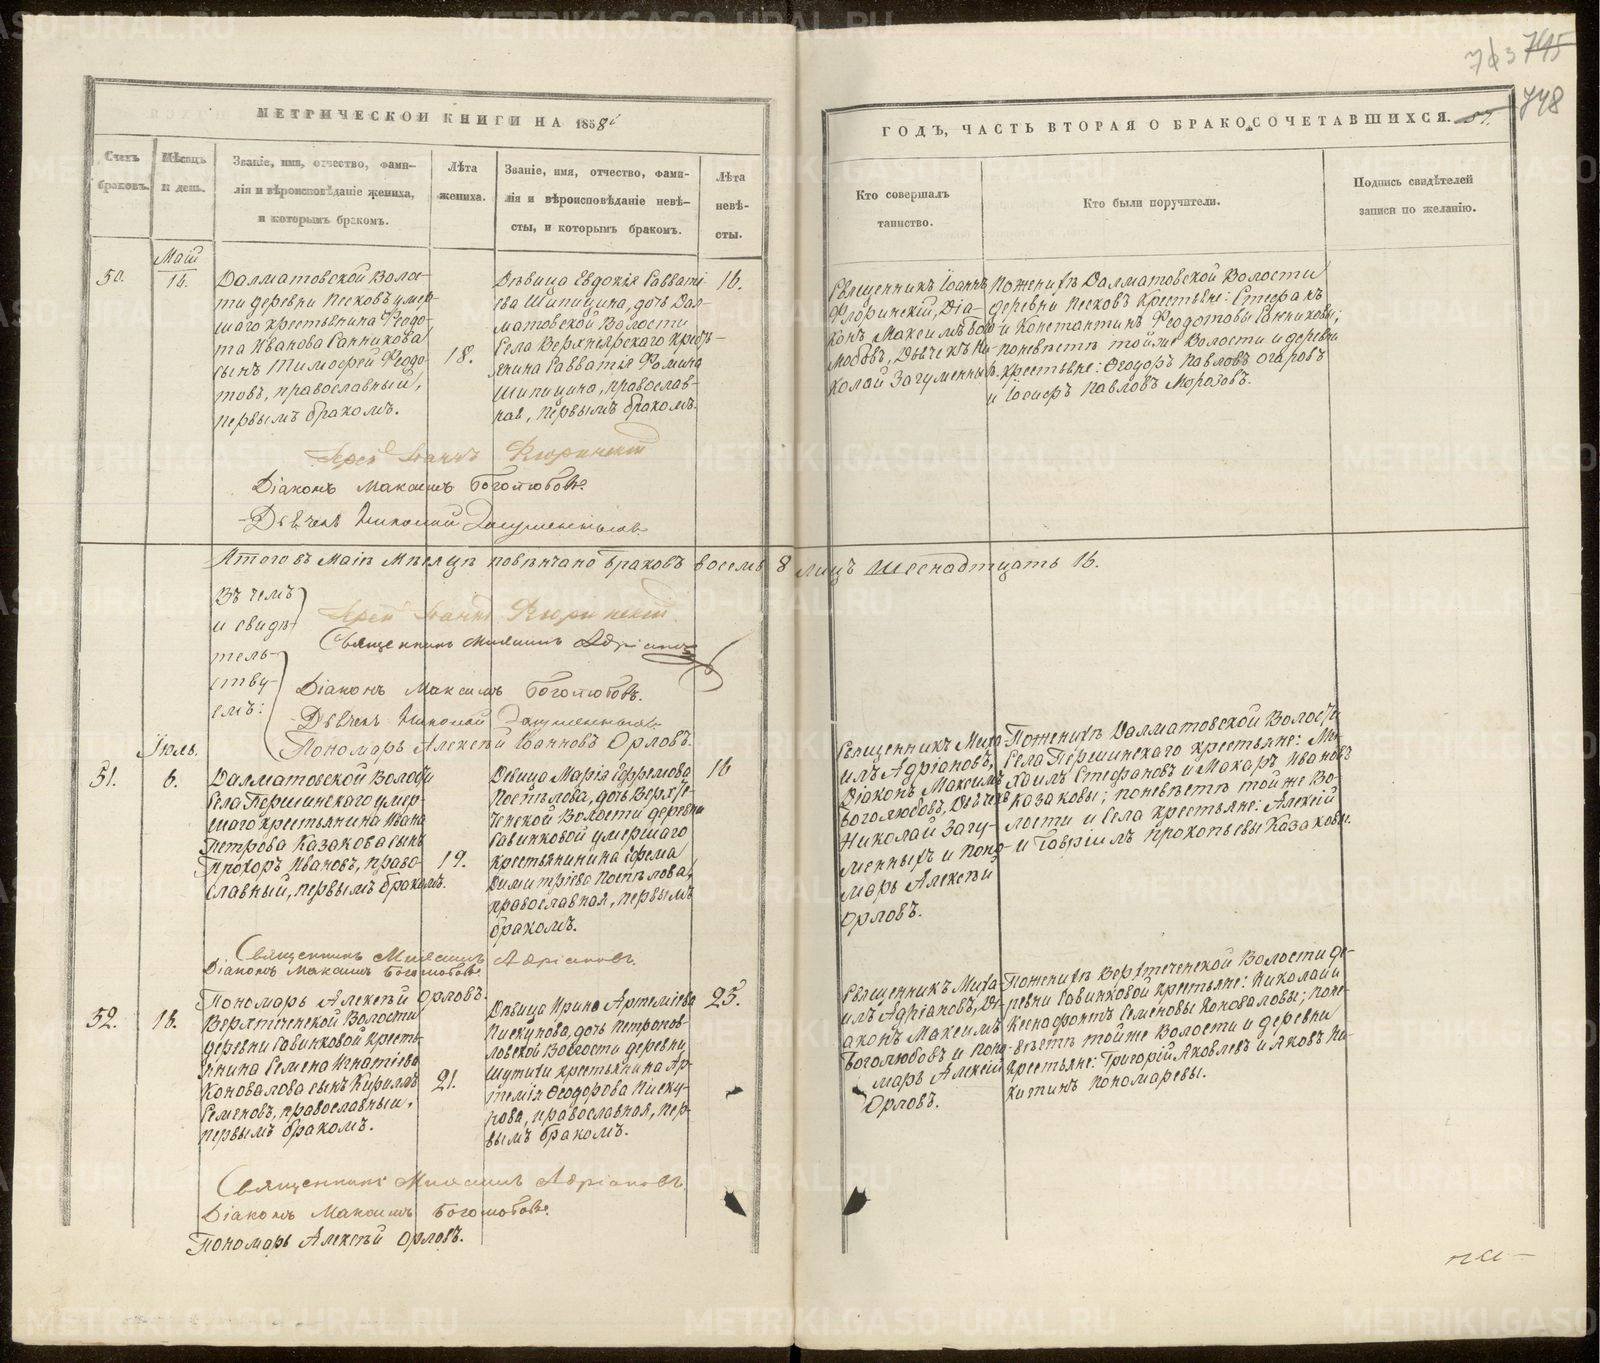 763 745
748
МЕТРИЧЕСКОЙ КНИГИ НА 1858й
ГОДЪ, ЧАСТЬ ВТОРАЯ О БРАКОСОЧЕТАВШИХСЯ.
Счетъ браковъ.
Мѣсяцъ и день.
Званіе, имя, отчество, фами-
лія и вѣроисповѣданіе жениха,
и которымъ бракомъ.
Лѣта жениха.
Званіе, имя, отчество, фами-
лія и вѣроисповѣданіе невѣ-
сты, и которымъ бракомъ.
Лѣта невѣ-
сты.
Кто совершалъ
таинство.
Кто были поручители.
Подпись свидѣтелей
записи по желанію.
Май
50.
14.
Далматовской Воло-
сти деревни Песковъ умер-
шаго крестьянина Ѳеодо-
та Иванова Санникова
сынъ Тимофей Ѳеодо-
товъ, православный,
первымъ бракомъ.
18.
Дѣвица Евдокія Савваті-
ева Шипицина, дочь Дал-
матовской Волости
Села Верхнеярскаго кресть-
янина Савватія Ѳомина
Шипицина, православ-
ная, первымъ бракомъ.
16.
Священникъ Іоаннъ
Флоринскій, Діа-
конъ Максимъ Бого-
любовъ, Дьячекъ Ни-
колай Загуменныхъ.
По женихѣ Далматовской Волости
деревни Песковъ крестьяне: Стефанъ
и Константинъ Ѳеодотовы Санниковы;
по невѣстѣ той же Волости и деревни
крестьяне: Ѳеодоръ Павловъ Огаровъ
и Іосифъ Павловъ Морозовъ.
Іерей Іоаннъ Флоринскій
Діаконъ Максимъ Боголюбовъ.
Дьячекъ Николай Загуменныхъ.
Итого въ Маіѣ Мѣсяцѣ повѣнчано браковъ восемь 8 лицъ шеснадтцать 16.
Въ чемъ
и свидѣ-
тель-
ству-
емъ:
Іерей Іоаннъ Флоринскій
Священникъ Михаилъ Адріановъ
Діаконъ Максимъ Боголюбовъ.
Дьячекъ Николай Загуменныхъ
Пономарь Алексѣй Іоанновъ Орловъ.
Іюль.
51.
6.
Далматовской Волости
Села Першинскаго умер-
шаго крестьянина Ивана
Петрова Казакова сынъ
Прохоръ Ивановъ, право-
славный, первымъ бракомъ.
19.
Дѣвица Марія Ефремова
Поспѣлова, дочь Верхте-
ченской Волости деревни
Савинковой умершаго
крестьянинина Ефрема
Димитріева Поспѣлова,
православная, первымъ
бракомъ.
16
Священникъ Миха-
илъ Адріановъ,
Діаконъ Максимъ
Боголюбовъ, Дьячекъ
Николай Загу-
менныхъ и Поно-
марь Алексѣй
Орловъ.
По женихѣ Далматовской Волости
Села Першинскаго крестьяне: Ми-
хаилъ Стефановъ и Макаръ Ивановъ
Казаковы; по невѣстѣ той же Во-
лости и села крестьяне: Алексій
и Гавріилъ Прокопьевы Казаковы.
Священникъ Михаилъ Адріановъ.
Діаконъ Максимъ Боголюбовъ.
Пономарь Алексѣй Орловъ.
52.
18.
Верхтеченской Волости
деревни Савинковой кресть-
янина Семена Игнатіева
Коновалова сынъ Кириллъ
Семеновъ, православный,
первымъ бракомъ.
21.
Дѣвица Ирина Артеміева
Пискунова, дочь Петропав-
ловской Волости деревни
Шутихи крестьянина Ар-
темія Ѳеодорова Писку-
нова, православная, пер-
вымъ бракомъ.
25.
Священникъ Миха-
илъ Адріановъ, Ді-
аконъ Максимъ
Боголюбовъ и Поно-
марь Алексѣй
Орловъ.
По женихѣ Верхтеченской Волости де-
ревни Савинковой крестьяне: Николай и
Ксенофонтъ Семеновы Коноваловы; по не-
вѣстѣ той же Волости и деревни
крестьяне: Григорій Яковлевъ и Яковъ Ни-
китинъ Пономаревы.
Священникъ Михаилъ Адріановъ.
Діаконъ Максимъ Боголюбовъ.
Пономарь Алексѣй Орловъ.
METRIKI.GASO-URAL.RU